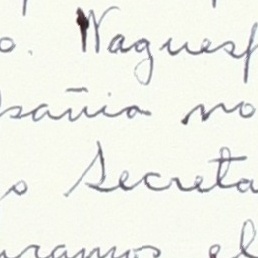 o. Naguesp
sañia no
o Secreta
uramos el